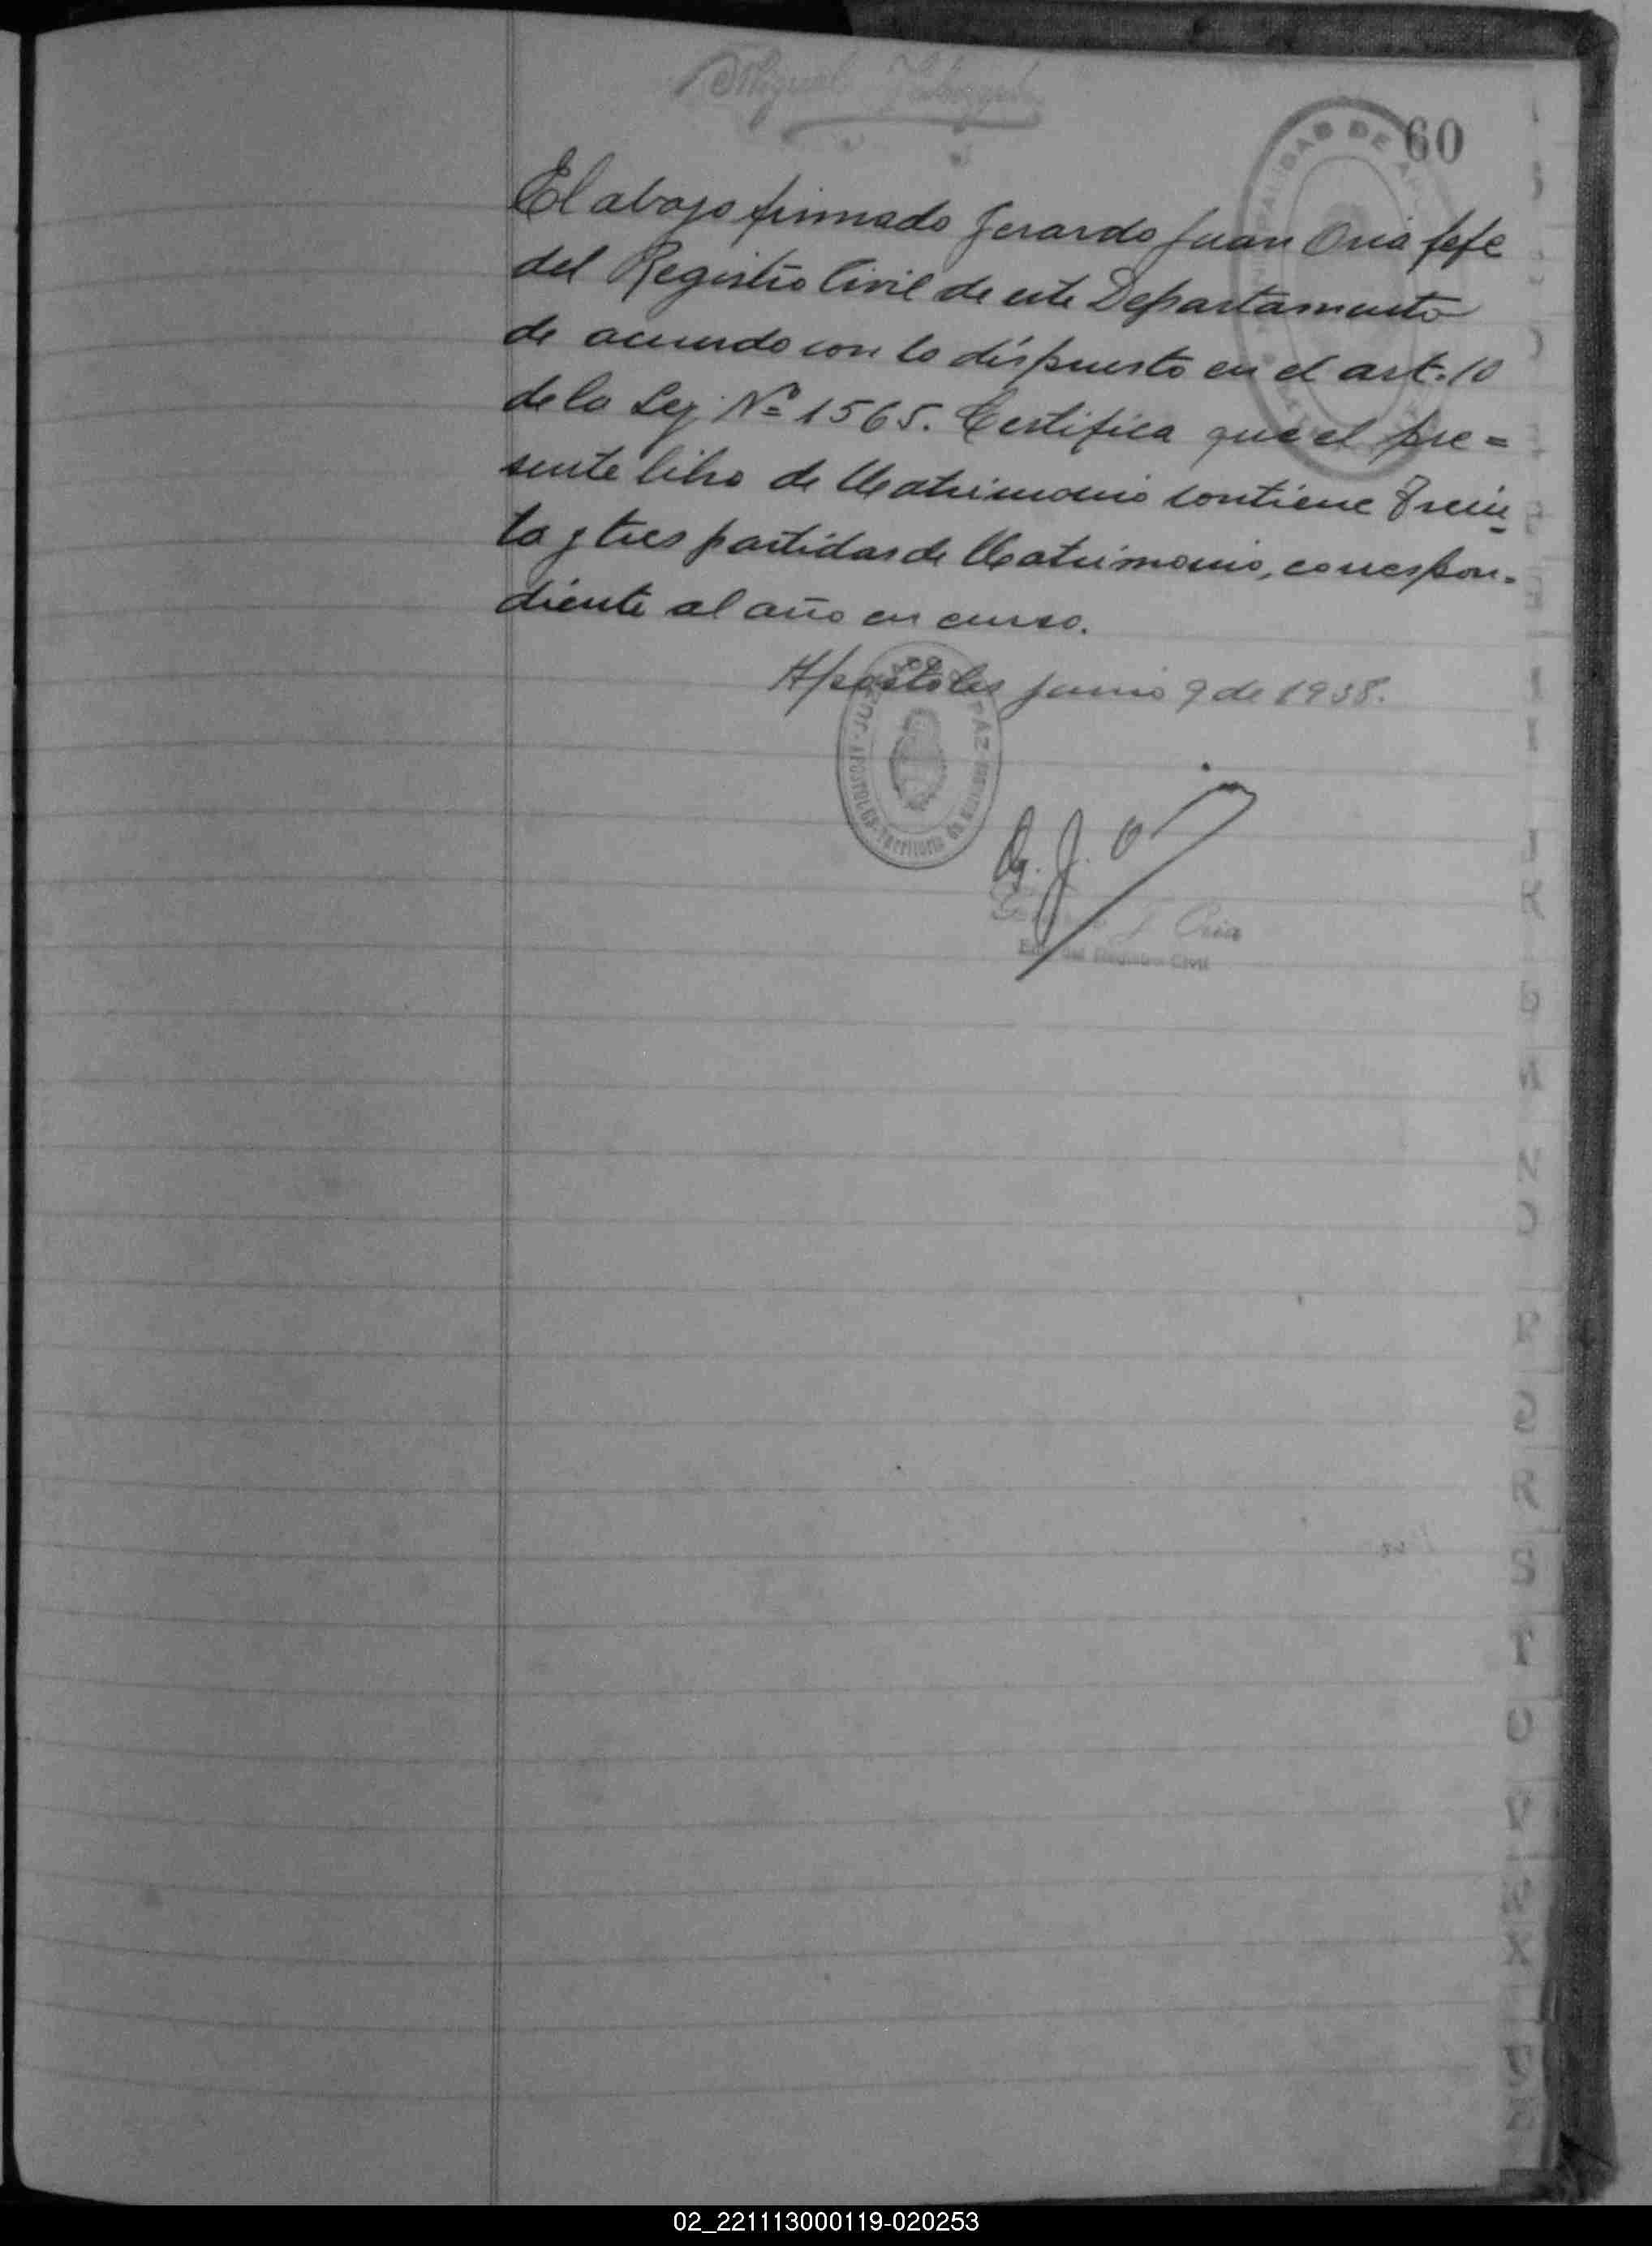 Miguel
60
El abajo firmado Gerardo Juan Oria Jefe
del Registro Civil de este Departamento
de acuerdo con lo dispuesto en el art. 10
de la Ley Nº 1565. Certifica que el pre=
sente libro de Matrimonio contiene Trein
ta y tres partidas de Matrimonio, correspon-
diente al año en curso.
Apostoles junio 9 de 1938.
JUZGADO DE PAZ
APOSTOLES - Territorio de Misiones
G. J. O
J Oria
Enc. del Registro Civil
02_221113000119-020253